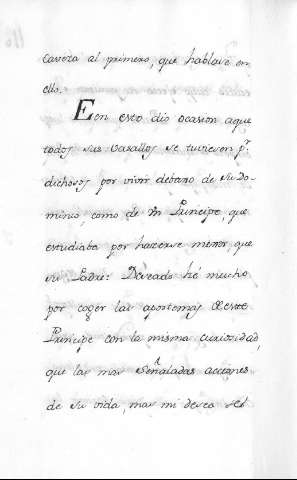 caveza al primero, que hablase en
ello.
Eon esto dio ocasion aque
todos sus Vasallos se tuviesen pr.
dichosos por vivir debaxo de su do-
minio, como de Vn Principe, que
estudiaba por hazerse menor, que
su Padre: Deseado hé mucho
por coger las apotemas
Principe con la misma curiosidad,
que las mas Señaladas acciones
de su vida, mas mi deseo